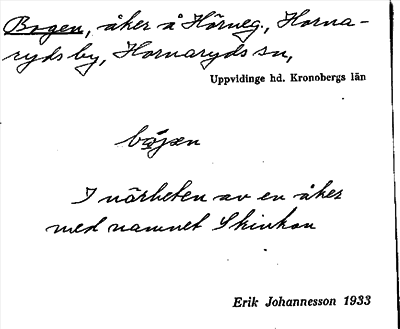 Bogen, åker å Hörneg., Horna-
ryds by, Hornaryds sn,
Uppvidinge hd. Kronobergs län
I närheten av en åker
med namnet Skinkan
Erik Johannesson 1933